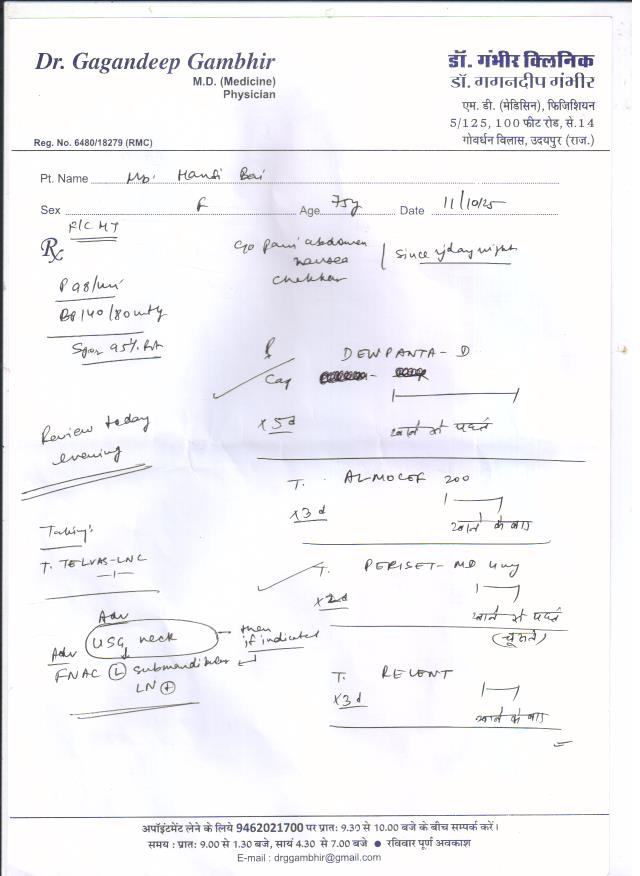 Dr. Gagandeep Gambhir
M.D. (Medicine)
Physician
Reg. No. 6480/18279 (RMC)
डॉ. गंभीर क्लिनिक
डॉ. गगनदीप गंभीर
एम. डी. (मेडिसिन), फिजिशियन
5/125, 100 फीट रोड, से.14
गोवर्धन विलास, उदयपुर (राज.)
Pt. Name Bai
Sex F Age 75y Date 11/10/25
Rx
c/o pain abdomen
nausea
chakkar
since y'day night
P 98/min
BP 140/80 mmHg
Spo2 95% RA
Review today
evening
Taking:
T. TELVAS-LNC
Adv
USG neck
then
if indicated
Adv
FNAC (L) submandibular
LN (+)
DEWPANTA-D
Cap
x 5d
खाने से पहले
T. ALMOCEF 200
x 3d
खाने के बाद
T. PERISET-MD 4mg
x 2d
खाने से पहले
(चूसने)
T. RELENT
x 3d
खाने के बाद
अपॉइंटमेंट लेने के लिये 9462021700 पर प्रात: 9.30 से 10.00 बजे के बीच सम्पर्क करें।
समय : प्रात: 9.00 से 1.30 बजे, सायं 4.30 से 7.00 बजे ● रविवार पूर्ण अवकाश
E-mail : drggambhir@gmail.com